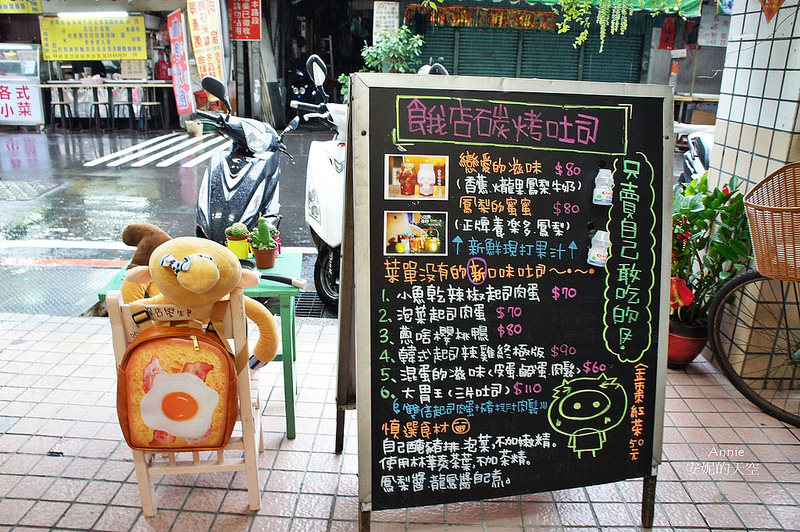 餓店碳烤吐司
戀愛的滋味 $80
(香蕉.火龍果.鳳梨牛奶)
鳳梨的蜜蜜 $80
(正牌養樂多.鳳梨)
↑新鮮現打果汁↑
菜單没有的新口味吐司~•~•
1. 小魚乾辣椒起司肉蛋 $70
2. 泡菜起司肉蛋 $70
3. 蔥啥櫻桃鴨 $80
4. 韓式起司辣雞終極版 $90
5. 混蛋的滋味(皮蛋.鹹蛋.肉鬆) $60
6. 大胃王(三片吐司) $110
慎選食材
自己醃豬排.泡菜,不加味精。
使用林華泰茶葉,不加茶精。
鳳梨醬.龍鳳醬自煮。
只賣自己敢吃的!
金棗紅茶50元
各式
小菜
Annie
安妮的天空